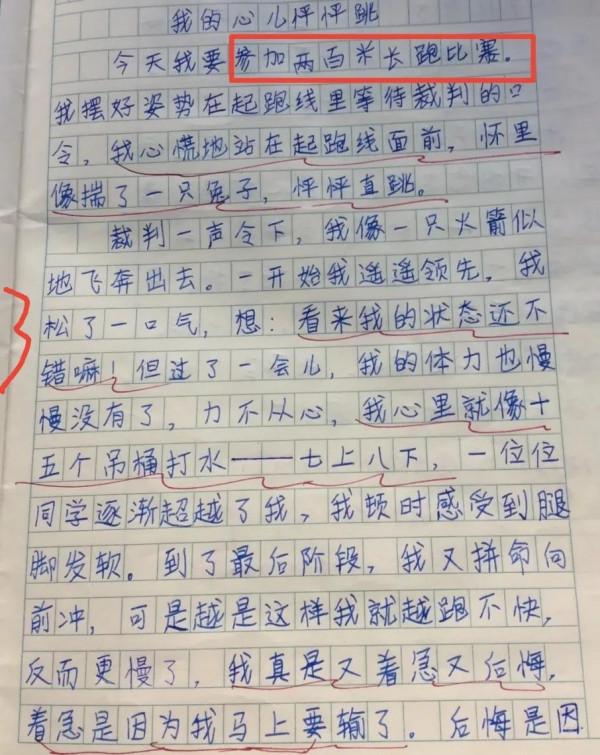 我的心儿怦怦跳
今天我要参加两百米长跑比赛。
我摆好姿势在起跑线里等待裁判的口
令,我心慌地站在起跑线面前,怀里
像揣了一只兔子,怦怦直跳。
裁判一声令下,我像一只火箭似
地飞奔出去。一开始我遥遥领先,我
松了一口气,想:看来我的状态还不
错嘛!但过了一会儿,我的体力也慢
慢没有了,力不从心,我心里就像十
五个吊桶打水——七上八下,一位位
同学逐渐超越了我,我顿时感受到腿
脚发软。到了最后阶段,我又拼命向
前冲,可是越是这样我就越跑不快,
反而更慢了,我真是又着急又后悔,
着急是因为我马上要输了。后悔是因